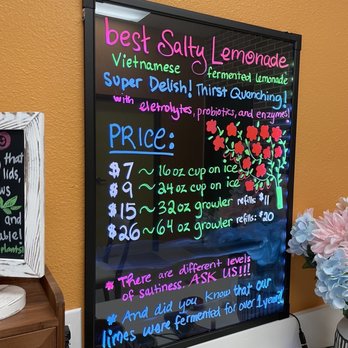 best Salty Lemonade
Vietnamese fermented lemonade
Super Delish! Thirst Quenching!
with eletrolytes, probiotics, and enzymes!
PRICE:
$7 ~ 16 oz cup on ice
$9 ~ 24 oz cup on ice
$15 ~ 32 oz growler refill: $11
$26 ~ 64 oz growler refills: $20
* There are different levels
of saltiness. ASK US!!!
* And did you know that our
limes were fermented for over 1 year!
that
lids,
ws
and
able!
plants!